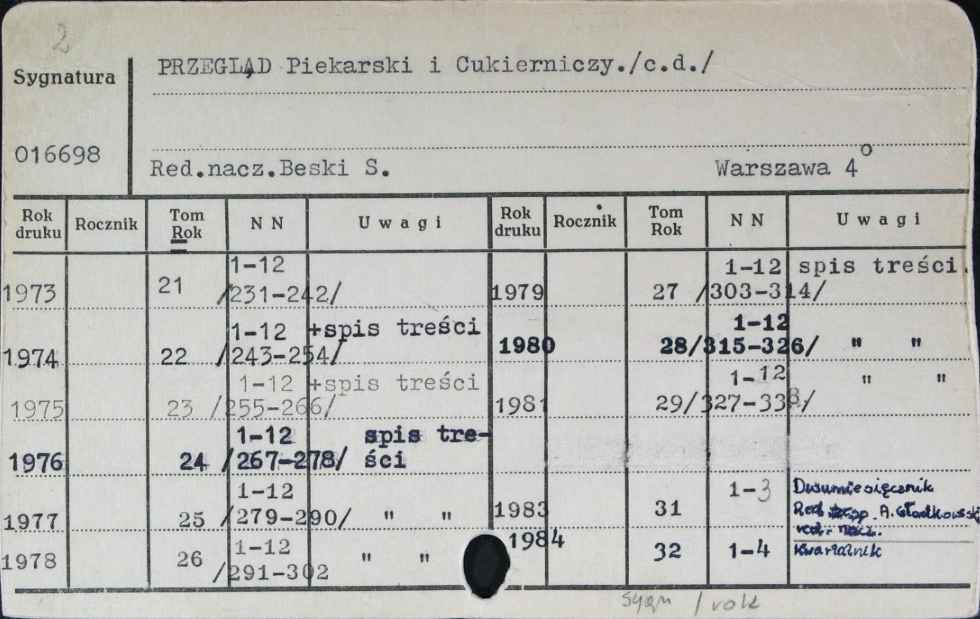 2
Sygnatura
PRZEGLĄD Piekarski i Cukierniczy./c.d./
016698
Red.nacz.Beski S. Warszawa 4o
Rok druku Rocznik Tom Rok N N Uwagi Rok druku Rocznik Tom Rok N N Uwagi
1973 21 1-12 /231-242/
1974 22 1-12 /243-254/ +spis treści
1975 23 1-12 /255-266/ +spis treści
1976 24 1-12 /267-278/ spis tre-
ści
1977 25 1-12 /279-290/ " "
1978 26 1-12 /291-302 " "
1979 27 1-12 /303-314/ spis treści.
1980 28 1-12 /315-326/ " "
1981 29 1-12 /327-338/ " "
1983 31 1-3 Dwumiesięcznik
Red. A.
red. nacz.
1984 32 1-4 Kwartalnik
sygn / rok